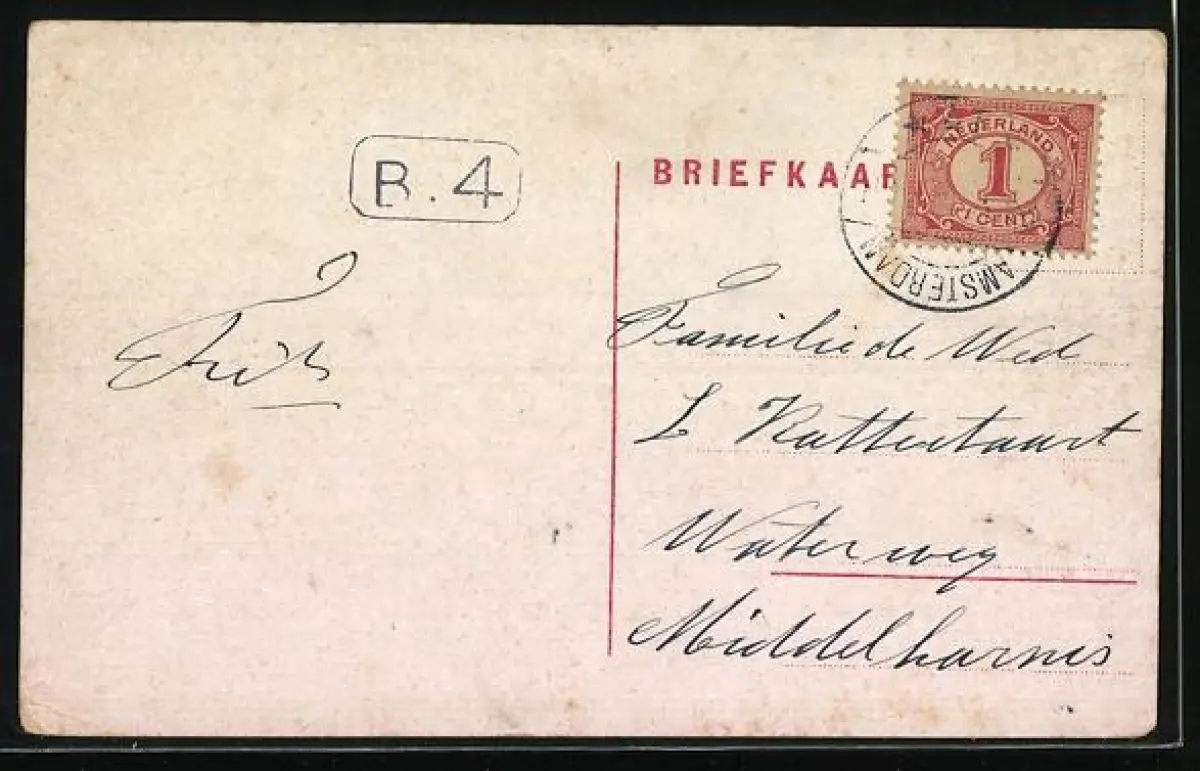 B.4
BRIEFKAAR
NEDERLAND
1
(1 CENT)
AMSTERDAM
Frits
Familie de Wed
L Kattestaart
Waterweg
Middelharnis